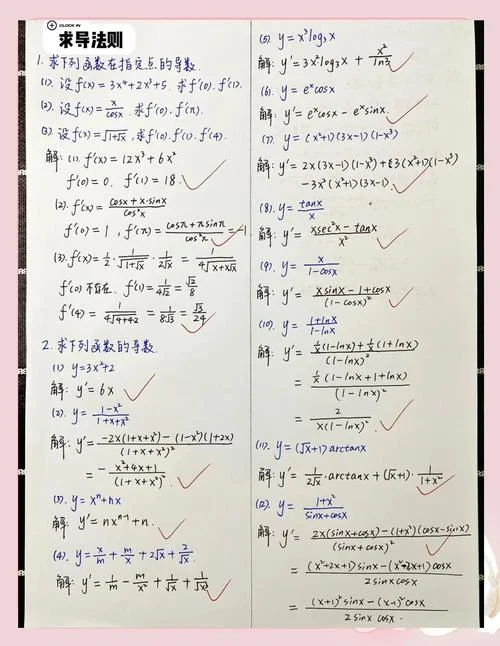 CLOCK IN
求导法则
1. 求下列函数在指定点的导数.
(1). 设f(x) = 3x⁴+2x³+5. 求f'(0). f'(1).
(2). 设f(x) = x/cosx. 求f'(0), f'(π).
(3). 设f(x)=√(1+√x), 求f'(0). f'(1). f'(4).
解: (1). f'(x) = 12x³+6x²
f'(0)=0. f'(1)=18.
(2). f'(x) = (cosx+x·sinx)/cos²x
f'(0)=1, f'(π) = (cosπ+πsinπ)/cos²π = -1
(3). f'(x) = 1/2 · 1/√(1+√x) · 1/(2√x) = 1/(4√(x+x√x))
f'(0)不存在. f'(1) = 1/(4√2) = √2/8
f'(4) = 1/(4√(4+4·2)) = 1/(8√3) = √3/24
2. 求下列函数的导数.
(1) y=3x²+2
解: y'=6x
(2). y= (1-x²)/(1+x+x²)
解: y'= (-2x(1+x+x²)-(1-x²)(1+2x))/(1+x+x²)²
= - (x²+4x+1)/(1+x+x²)²
(3). y=xⁿ+nx
解: y'= nxⁿ⁻¹+n.
(4). y= x/m + m/x + 2√x + 2/√x.
解: y'= 1/m - m/x² + 1/√x + 1/√x³
(5) y=x³log₃x
解: y'=3x²log₃x + x²/ln3
(6). y=eˣcosx
解: y'=eˣcosx-eˣsinx.
(7) y=(x²+1)(3x-1)(1-x³)
解: y'=2x(3x-1)(1-x³)+3(x²+1)(1-x³)
-3x²(x²+1)(3x-1).
(8). y= tanx/x
解: y'= (xsec²x-tanx)/x²
(9). y= x/(1-cosx)
解: y'= (xsinx-1+cosx)/(1-cosx)²
(10). y= (1+lnx)/(1-lnx)
解: y'= (1/x(1-lnx)+1/x(1+lnx))/(1-lnx)²
= (1/x(1-lnx+1+lnx))/(1-lnx)²
= 2/(x(1-lnx)²)
(11). y=(√x+1)arctanx
解: y'= 1/(2√x)·arctanx+(√x+1)·1/(1+x²)
(12). y= (1+x²)/(sinx+cosx)
解: y'= (2x(sinx+cosx)-(1+x²)(cosx-sinx))/(sinx+cosx)²
= ((x²+2x+1)sinx-(x²-2x+1)cosx)/(2sinxcosx)
= ((x+1)²sinx-(x-1)²cosx)/(2sinx cosx).